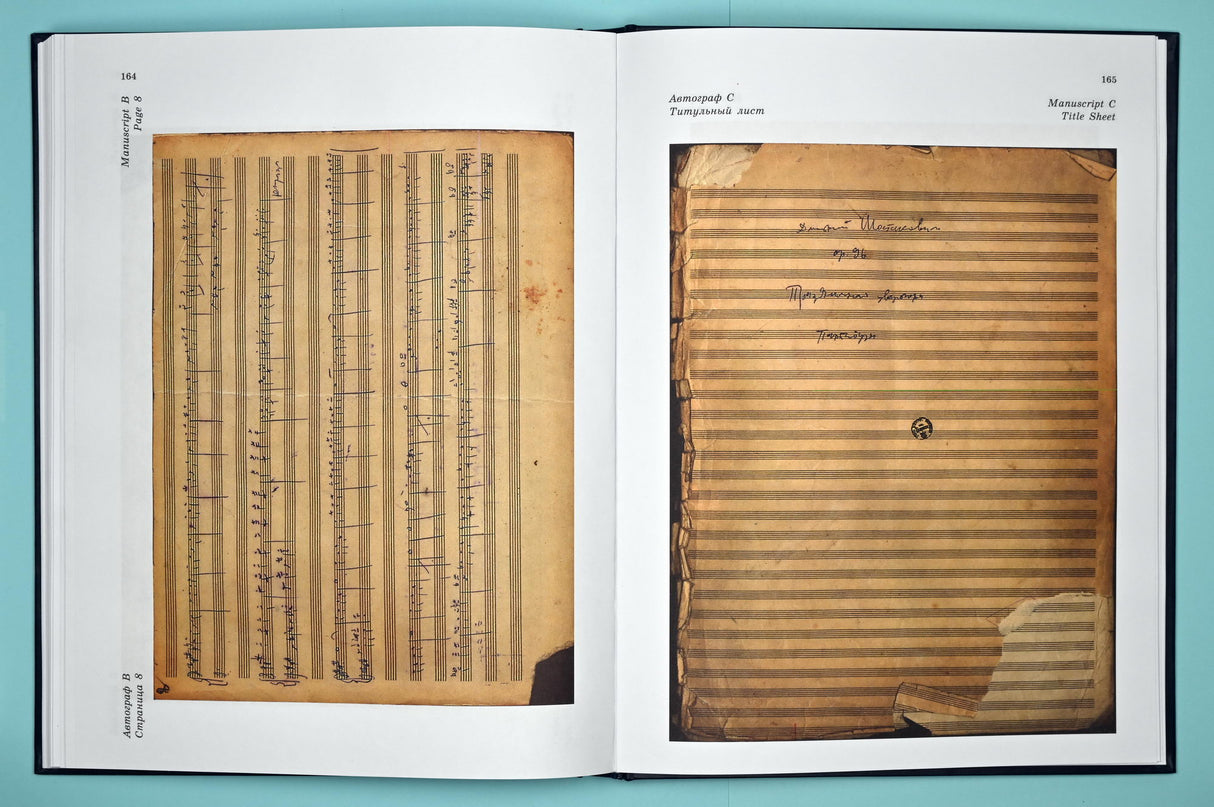 164
Manuscript B
Page 8
Автограф B
Страница 8
165
Автограф C
Титульный лист
Manuscript C
Title Sheet
Дмитрий Шостакович
ор. 96
Праздничная увертюра
Партитура